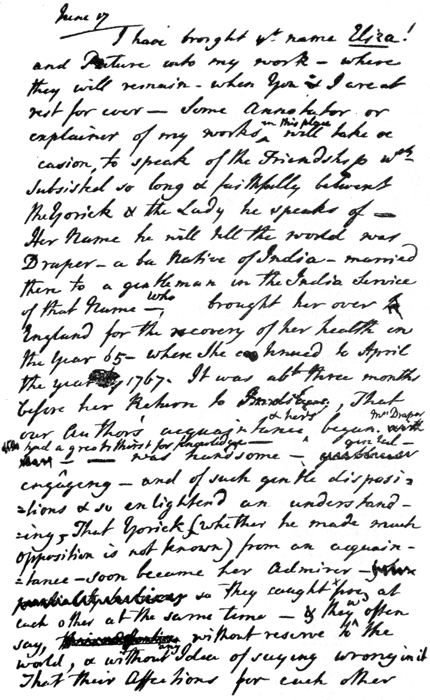 June 17
I have brought yr name Eliza!
and Picture into my work – where
they will remain – when You & I are at
rest for ever – Some Annotator or
explainer of my works in this place will take oc
casion, to speak of the Friendship wch
Subsisted so long & faithfully betwixt
Yorick & the Lady he speaks of –
Her Name he will tell the world was
Draper – a Native of India – married
there to a gentleman in the India Service
of that Name –, who brought her over to
England for the recovery of her health in
the Year 65 – where She continued to April
the year 1767. It was abt three months
before her Return to India, That
our Author's acquaintance & hers began. Mrs Draper
had a great thirst for Knowledge –
– was handsome – genteel –
engageing – and of such gentle disposi=
=tions & so enlightend an understand=
=ing, That Yorick (whether he made much
opposition is not known) from an acquain=
=tance – soon became her Admirer –
they caught fire, at
each other at the same time – & they wd often
say, without reserve to the
world, & without any Idea of saying wrong in it
That their Affections for each other